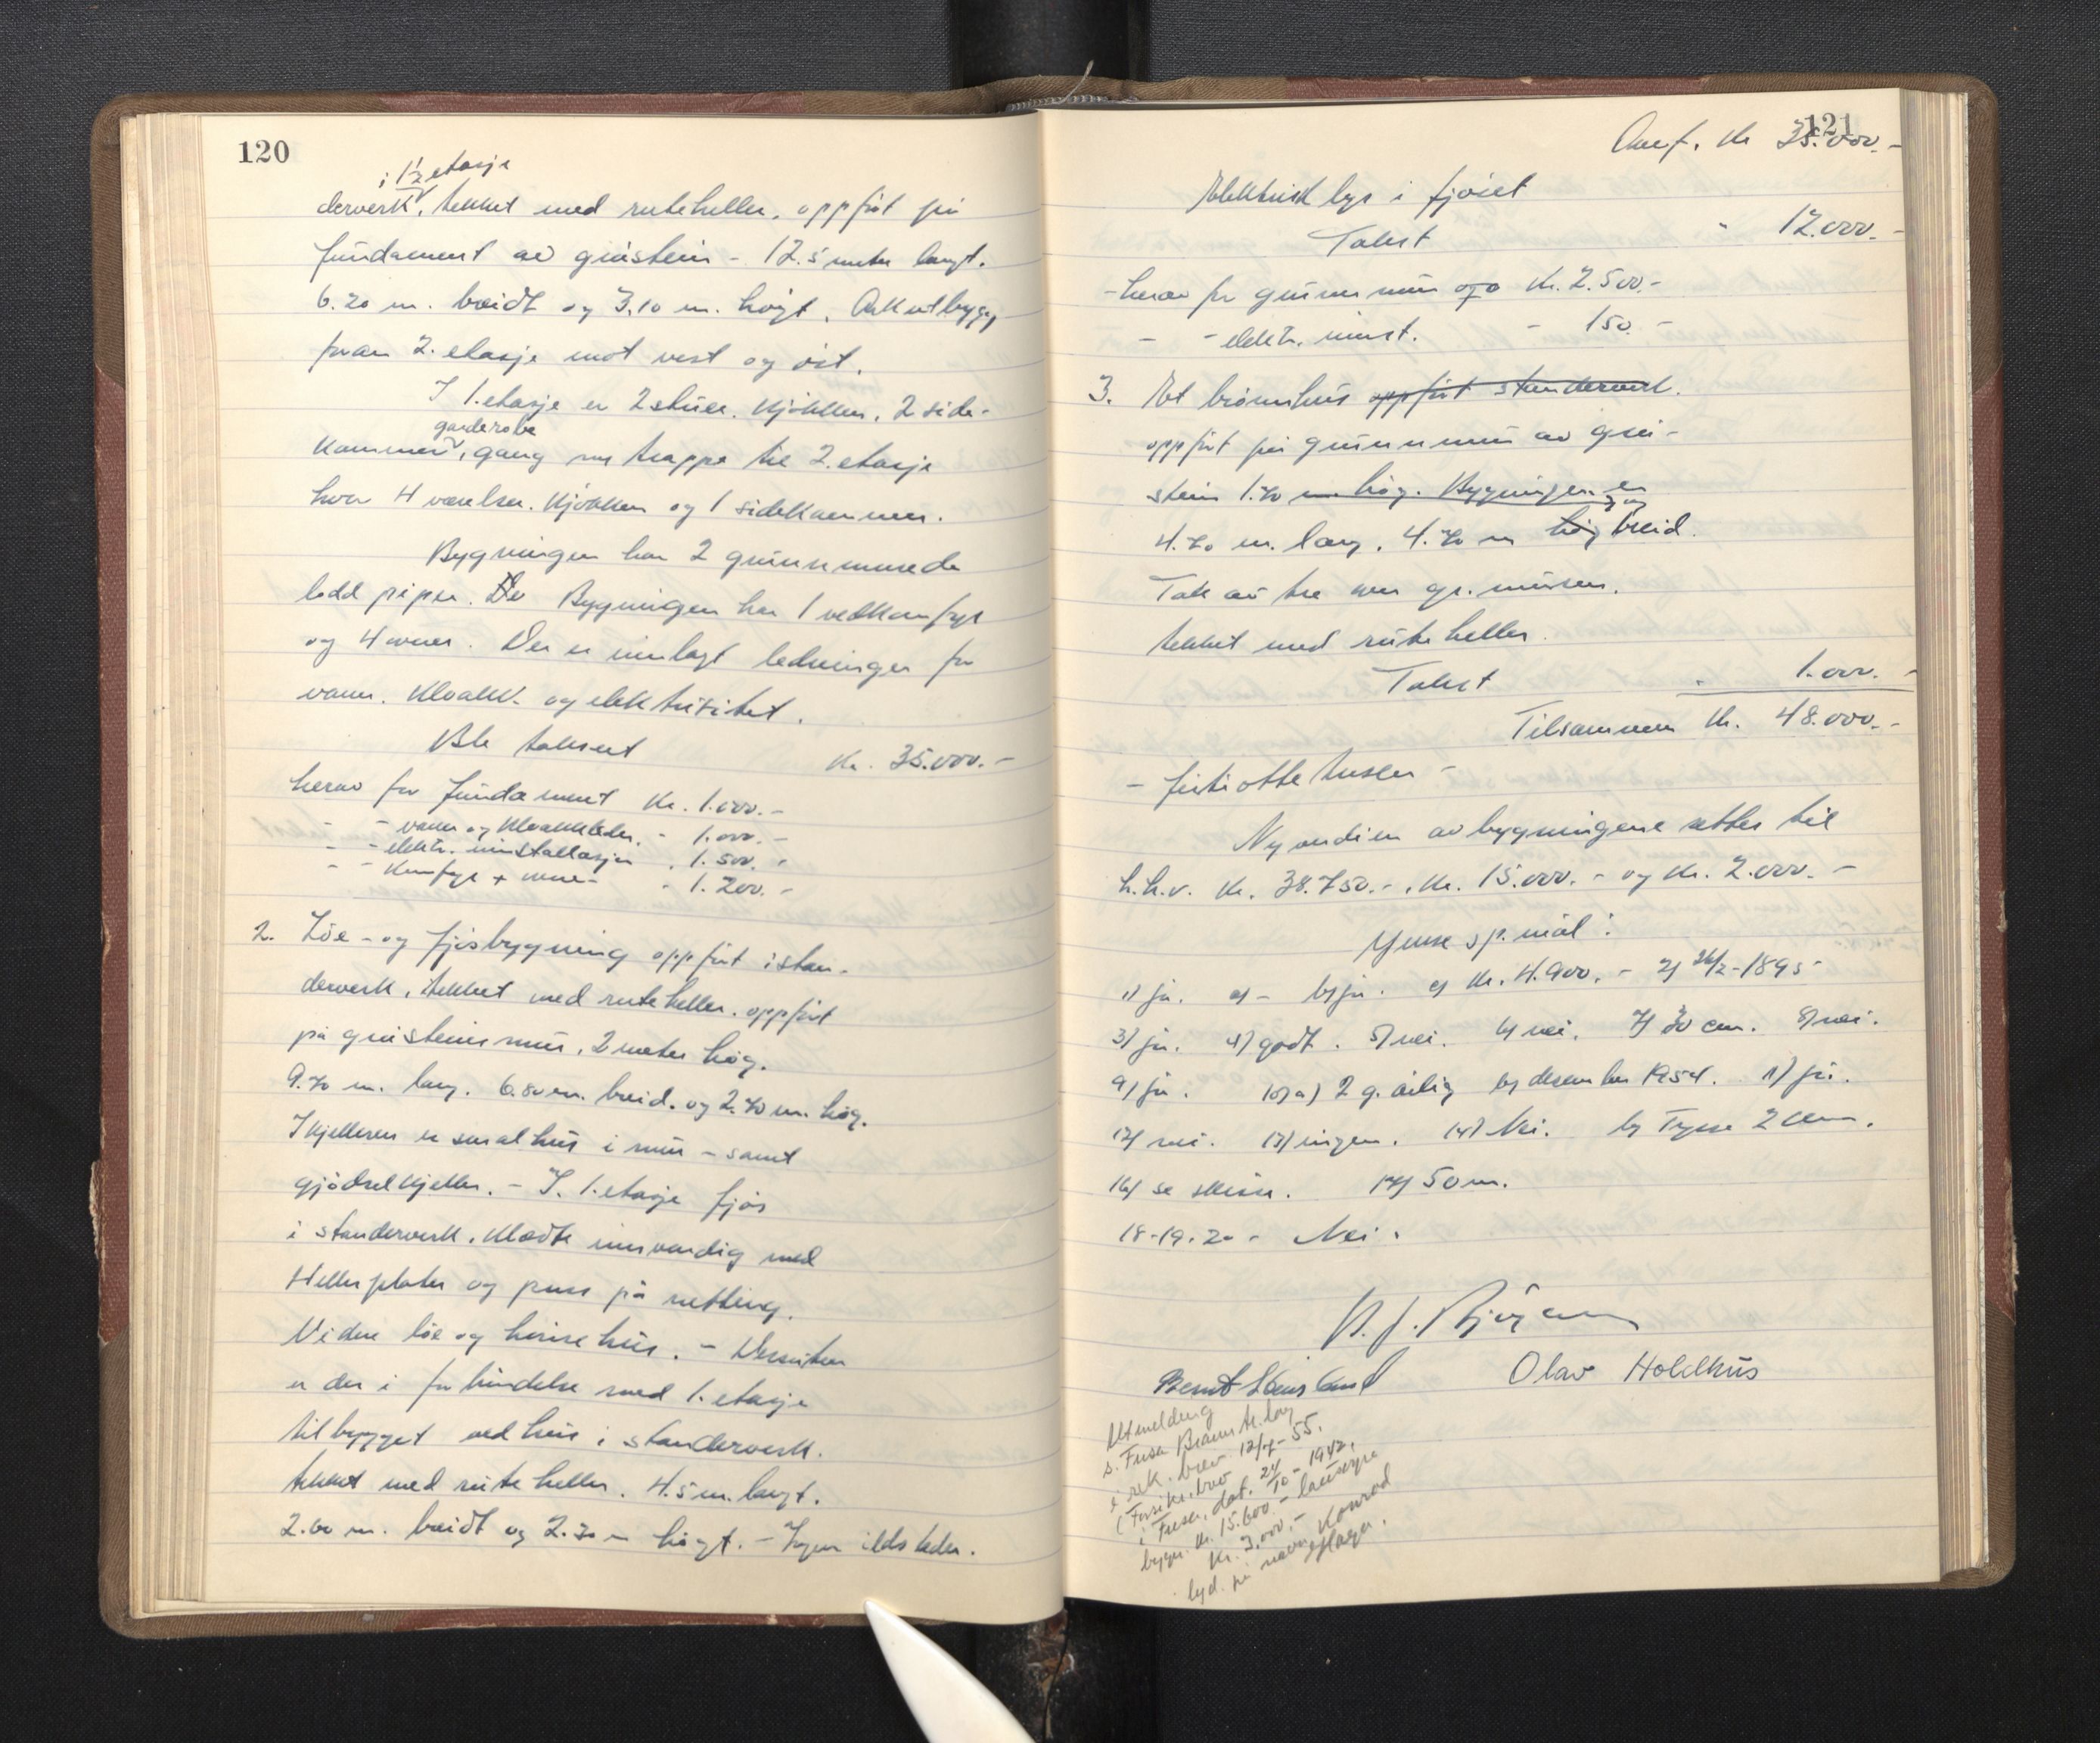 120
i 1½ etasje
derverk, tekket med ruteheller, oppført på
fundament av gråstein - 12.5 meter langt.
6.20 m. breidt og 3,10 m. høgt. Ark utbygg
fram 2. etasje mot vest og øst.
I 1. etasje er 2 stuer. Kjøkken, 2 side-
garderobe
kammer, gang m trappe til 2. etasje
hvor 4 værelser. Kjøkken og 1 sidekammer.
Bygningen har 2 grunnmurede
lodd piper. De Bygningen har 1 vedkomfyr
og 4 ovner. Der er innlagt ledninger for
vann. Kloakk- og elektrisitet.
Ble taksert kr. 35.000.-
herav for fundament kr. 1.000.-
- - vann og kloakkledn. - 1.000.-
- - elektr. innstallasjon . 1.500. -
- - Komfyr + ovner - 1.200.-
2. Løe- og fjøsbygning oppført i stan-
derverk, tekket med ruteheller. oppført
på gråsteinsmur, 2 meter høg.
9.70 m. lang. 6.80 m. breid. og 2.70 m. høg.
I kjelleren er smalhus i mur - samt
gjødselkjeller. - I. 1. etasje fjøs
i standerverk. Klædte innvendig med
Heller plater og puss på netting.
Videre løe og hønsehus. - Dessuten
er der i forbindelse med 1. etasje
tilbygget vedhus i standerverk.
tekket med ruteheller. 4.5 m. langt.
2.60 m. breidt og 2.30 m høgt. - Ingen ildsteder.
121
Overf. kr 35.000.-
Elektrisk lys i fjøset
Takst " 12.000.-
- herav for grunnmur ogo kr. 2.500.-
- - elektr. innst. - 150.-
3. Et brønnhus oppført standerverk.
oppført på grunnmur av grå-
stein 1.70 m. høg. Bygningen er
4.70 m. lang. 4.70 m høg breid.
Tak av tre over gr. muren.
tekket med ruteheller.
Takst . 1.000. -
Tilsammen kr. 48.000.-
- førtiotte tusen -
Nyverdien av bygningene settes til
h.h.v. kr. 38.750.-, kr. 15.000.- og kr. 2.000.-
Ymse sp.mål:
1) ja. a) - b) ja. c) kr. 4.900.- 2) 26/2-1895
3) ja. 4) godt. 5) nei. 6) nei. 7) 30 cm. 8) nei.
9) ja. 10) a) 2 g. årlig b) desember 1954. 11) ja.
12) nei. 13) ingen. 14) Nei. b) Tysse 2 km.
16) se skisse. 17) 50 m.
18-19.20 - Nei.
Olav Holdhus
Utmelding
s. Fusa Branntr.lag
i rek. brev 12/4-55.
(Forsikr.brev
i Fusa, dat. 24/10-1942,
bygn. kr. 15.600.- lausøyre
kr. 3.000.-
lyd. på navn Konrad